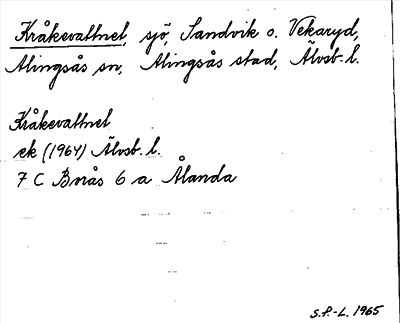 Kråkevattnet, sjö, Sandvik o. Vekaryd,
Alingsås sn, Alingsås stad, Älvsb. l.
Kråkevattnet
ek (1964) Älvsb. l.
7 C Borås 6 a Ålanda
S.P.-L. 1965